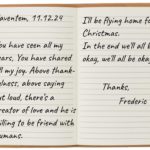 aventem, 11.12.24
ou have seen all my
ears, You have shared
ll my joy. Above thank-
ulness, above saying
out loud, there's a
reator of love and he is
illing to be friend with
umans.
I'll be flying home for
Christmas.
In the end we'll all b
okay, we'll all be okay.
Thanks,
Frederic